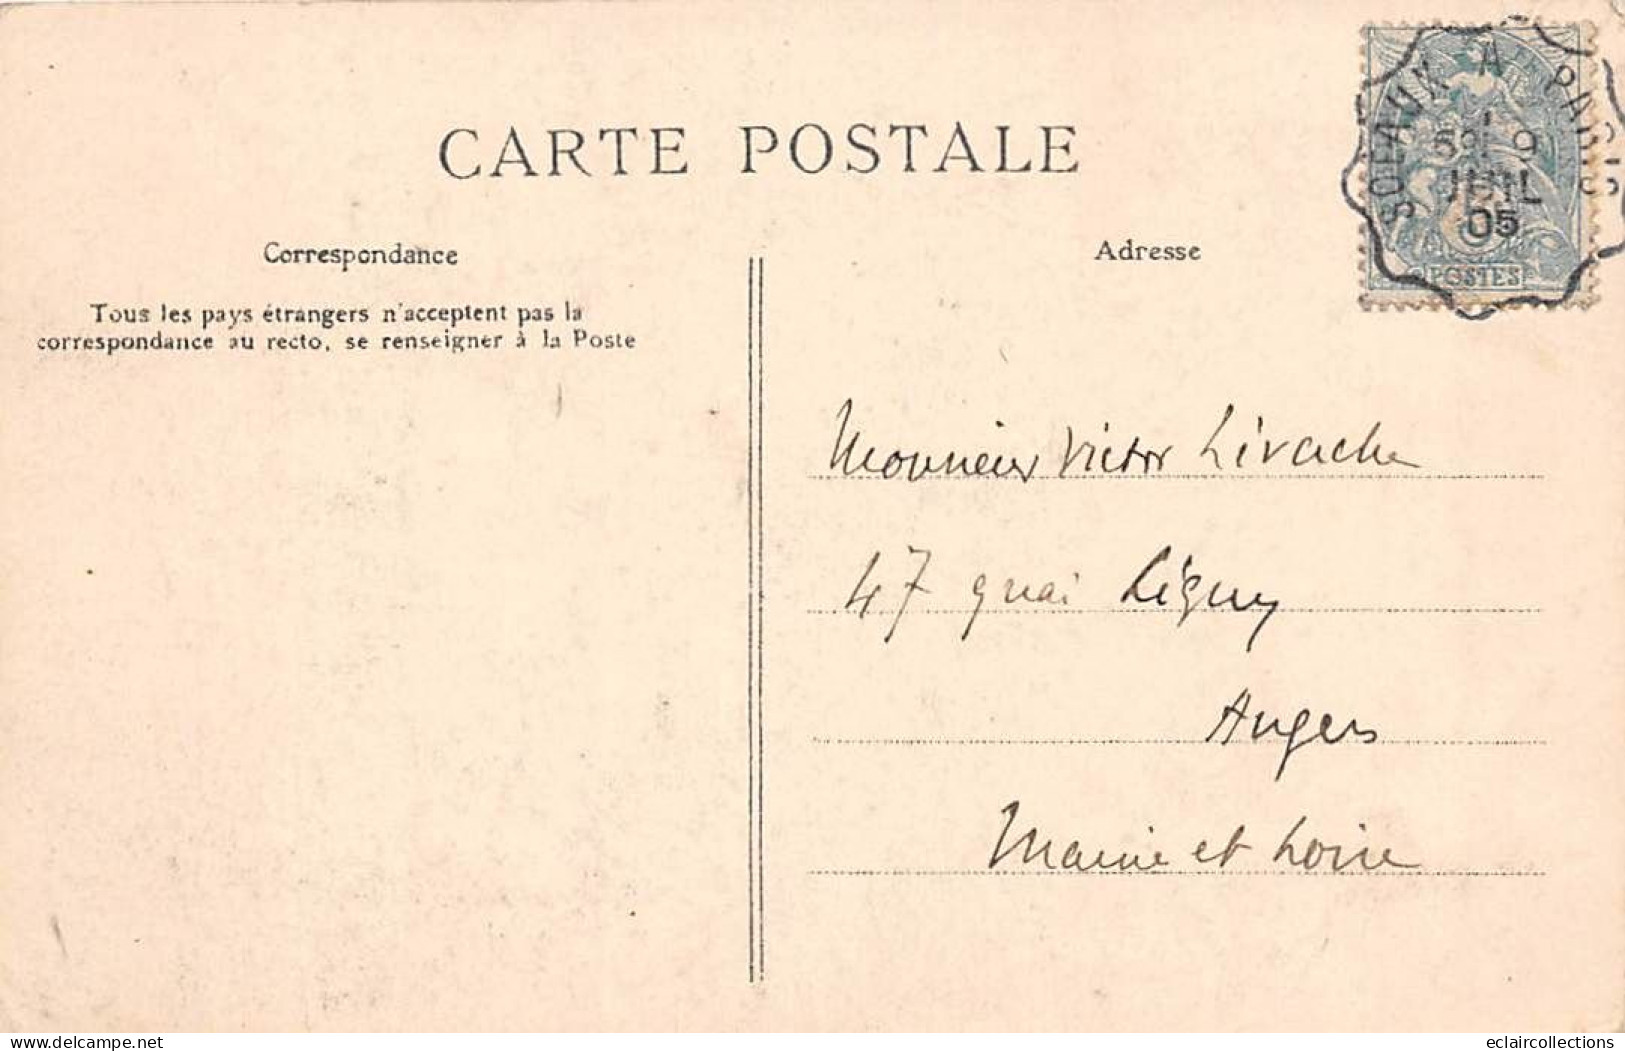 CARTE POSTALE
SCEAUX A PARIS
5º 9
JUIL
05
POSTES
Correspondance
Adresse
Tous les pays étrangers n'acceptent pas la
correspondance au recto, se renseigner à la Poste
Monsieur Victor Livache
47 quai Ligny
Angers
Maine et Loire
eclaircollections